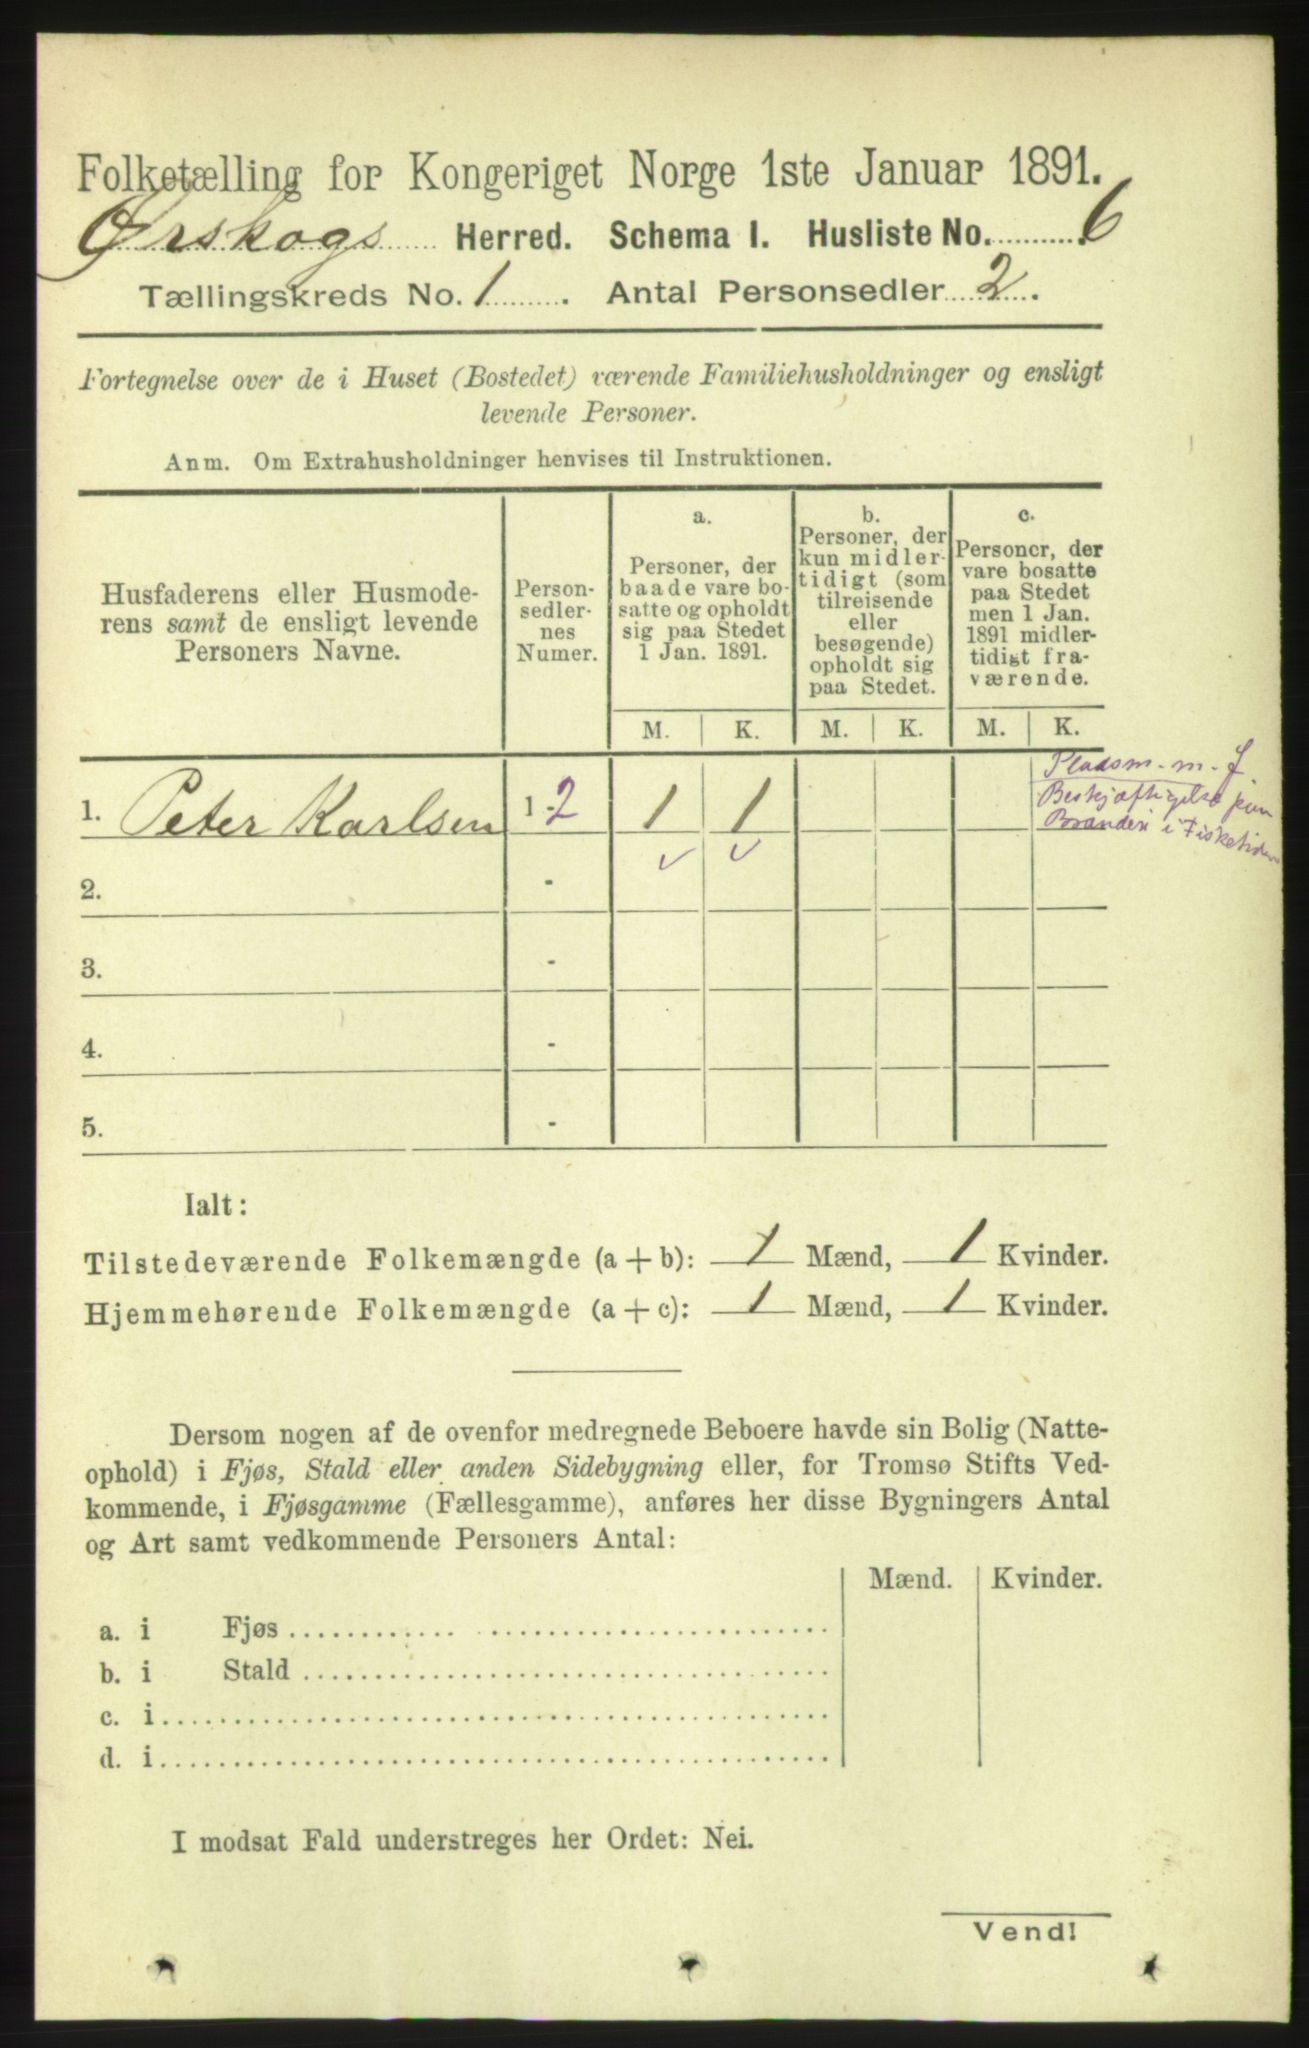 Folketælling for Kongeriget Norge 1ste Januar 1891.
Ørskogs Herred. Schema I. Husliste No. 6
Tællingskreds No. 1. Antal Personsedler 2.
Fortegnelse over de i Huset (Bostedet) værende Familiehusholdninger og ensligt
levende Personer.
Anm. Om Extrahusholdninger henvises til Instruktionen.
Husfaderens eller Husmode-
rens samt de ensligt levende
Personers Navne.
Person-
sedler-
nes
Numer.
a.
Personer, der
baade vare bo-
satte og opholdt
sig paa Stedet
1 Jan. 1891.
b.
Personer, der
kun midler-
tidigt (som
tilreisende
eller
besøgende)
opholdt sig
paa Stedet.
c.
Personer, der
vare bosatte
paa Stedet
men 1 Jan.
1891 midler-
tidigt fra-
værende.
M. K. M. K. M. K.
Pladsm. m. J
Beskjæftigelse
i Fisketiden
1. Peter Karlsen 1-2 1 1
2. -
3. -
4. -
5. -
Ialt:
Tilstedeværende Folkemængde (a + b): 1 Mænd, 1 Kvinder.
Hjemmehørende Folkemængde (a + c): 1 Mænd, 1 Kvinder.
Dersom nogen af de ovenfor medregnede Beboere havde sin Bolig (Natte-
ophold) i Fjøs, Stald eller anden Sidebygning eller, for Tromsø Stifts Ved-
kommende, i Fjøsgamme (Fællesgamme), anføres her disse Bygningers Antal
og Art samt vedkommende Personers Antal:
Mænd. Kvinder.
a. i Fjøs
b. i Stald
c. i
d. i
I modsat Fald understreges her Ordet: Nei.
Vend!